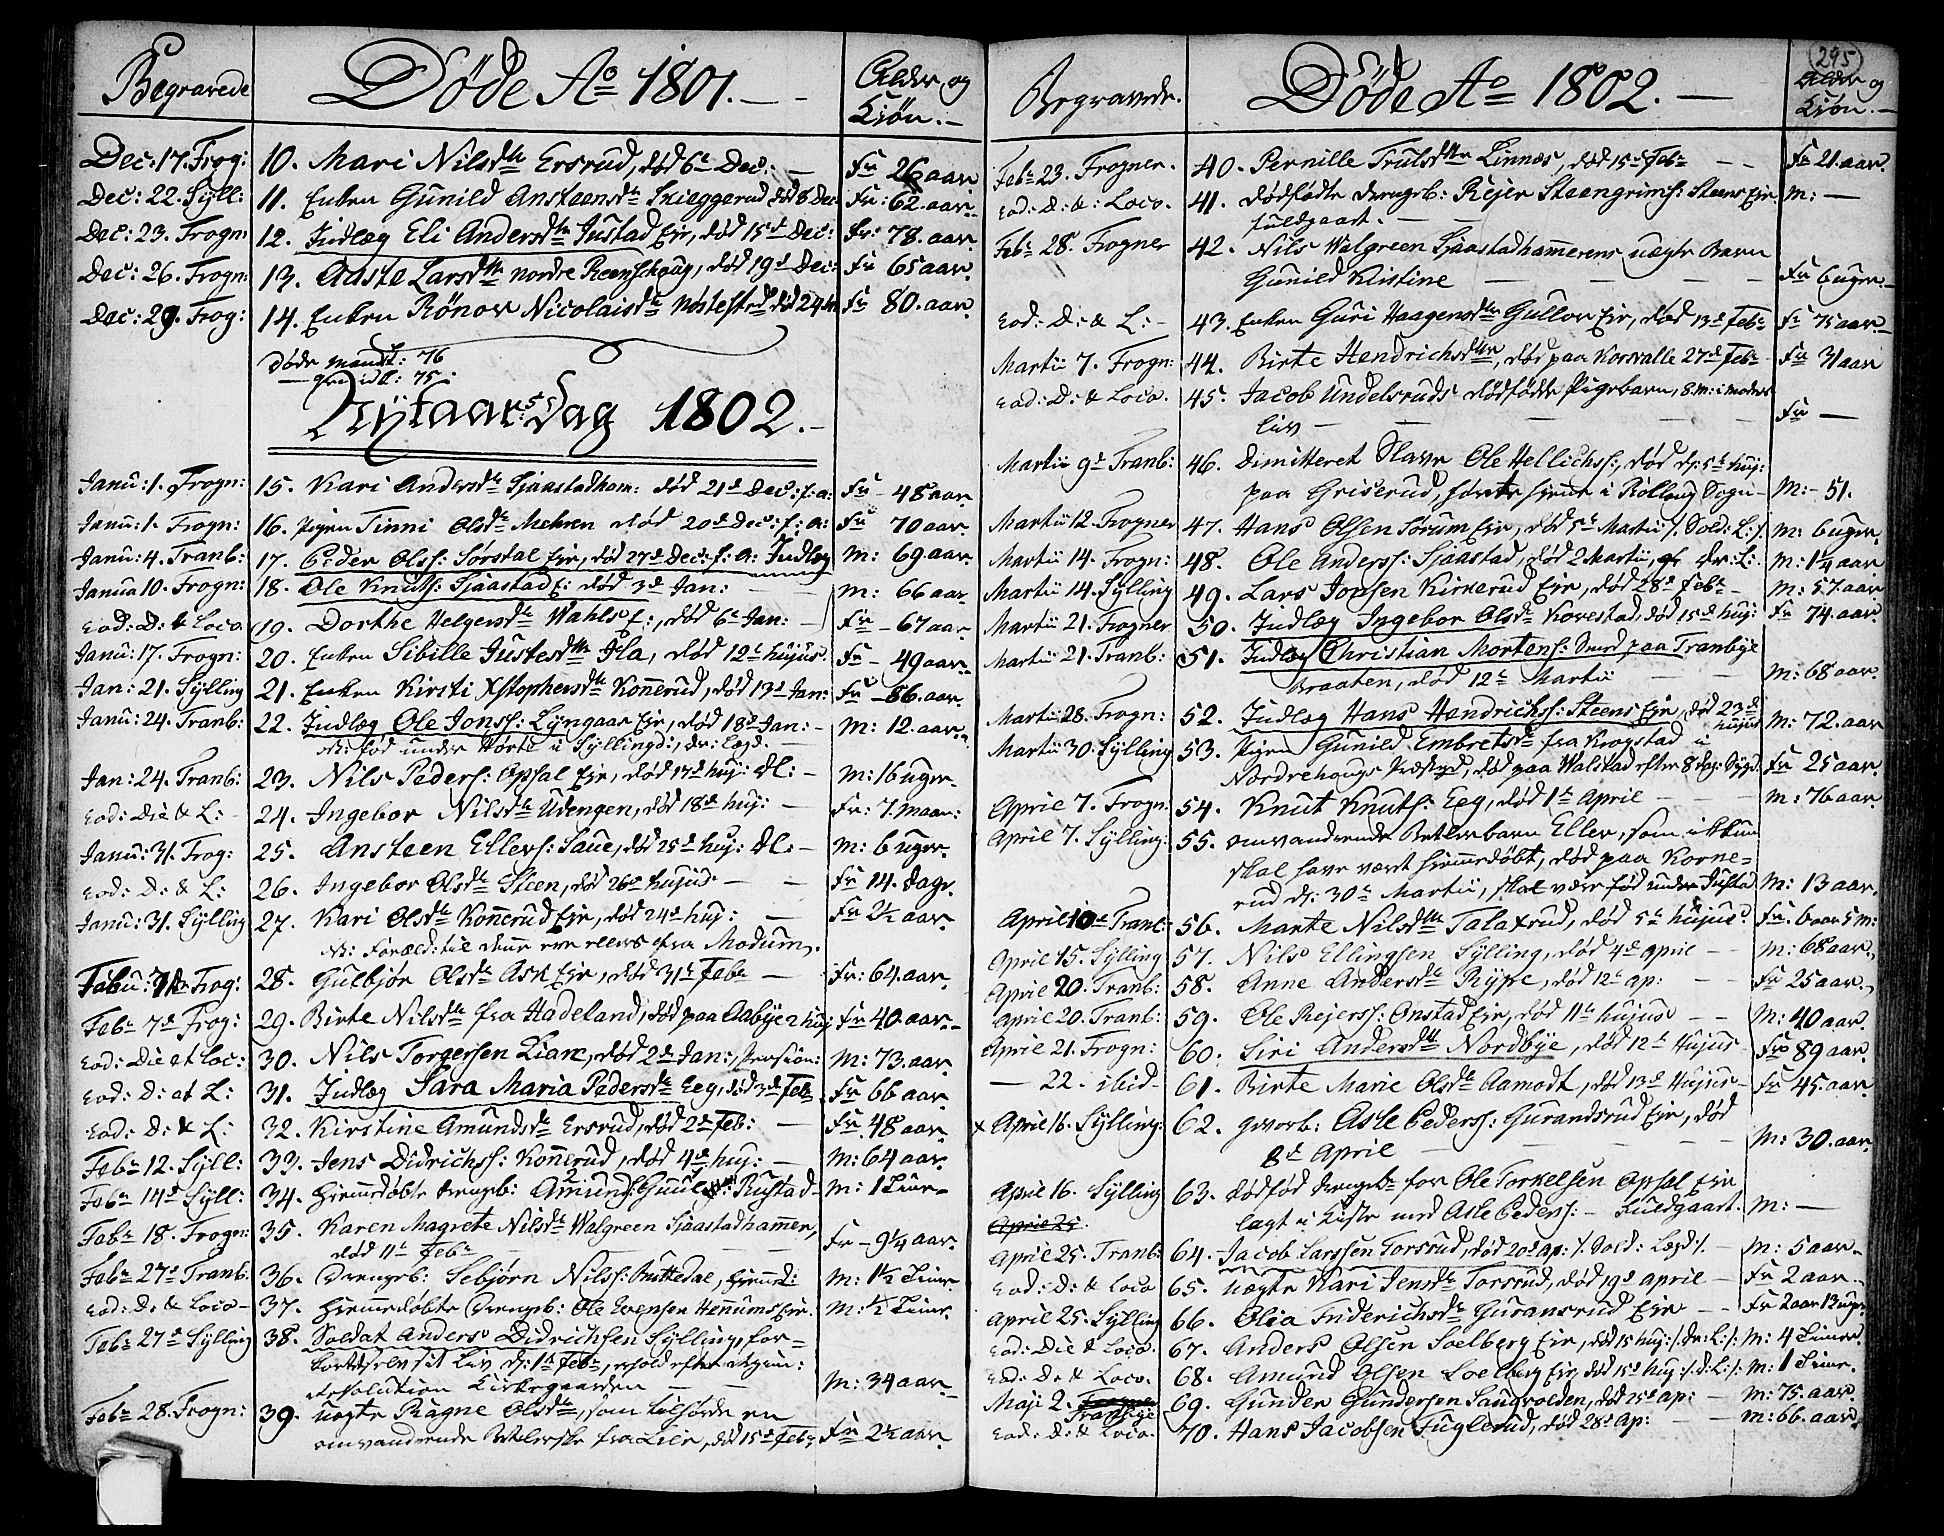 Begravede Døde Ao 1801. Alder og Kiøn.
Dec: 17. Frog: 10. Mari Nilsdtr Ersrud, død 6te Dec: Fr 26 aar
Dec: 22. Syll: 11. Enken Gunild Ansteensdtr Skieggerud død 6 Dec Fr: 62. aar.
Dec: 23. Frogn: 12. Indlæg Eli Andersdtr Justad Eje, død 15de Dec: Fr: 78. aar.
Dec: 26. Frogn: 13. Aaste Larsdtr nordre Reenschoug, død 19de Dec: Fr 65 aar.
Dec: 29. Frog: 14. Enken Rønov Nicolaisdtr Nøstested død 24de Fr 80. aar.
Døde Mandk: 76
qvindk: 75.
Nytaarsdag 1802.
Janu: 1. Frogn: 15. Kari Andersdtr Sjaastadham: død 21de Dec: f: a: Fr - 48 aar.
Janu: 1. Frogn: 16. Pigen Tinni Olsdtr Mehren død 20de Dec: f: a: Fr 70 aar.
Janu: 4. Tranb: 17. Peder Olss: Sørstal Eje, død 27de Dec: f: a: Indlæg M: 69 aar.
Janua 10. Frogn: 18. Ole Knuts: Sjaastad E: død 3de Jan: M: 66 aar.
Eod: D: & Loco. 19. Dorthe Helgersdtr Wahls E:, død 6te Jan: Fr - 67 aar.
Janu: 17. Frogn: 20. Enken Sibille Justesdtr Isla, død 12te hujus. Fr - 49 aar.
Jan: 21. Sylling 21. Enken Kirsti Xstophersdtr Konnerud, død 13de Jan: Fr - 86. aar.
Janu: 24. Tranb: 22. Indlæg Ole Jonss: Lyngaas Eje, død 18de Jan: M: 12. aar.
NB: fød under Horte i Syllingd:, dr: Lægd.
Jan: 24. Tranb: 23. Nils Peders: Opsal Eje, død 17de huj: dl: M: 16 uger.
Eod: Die & L: 24. Ingebor Nilsdtr Udengen, død 18de huj: Fr: 7. Maan:
Janu: 31. Frog: 25. Ansteen Ellers: Saue, død 25de huj: dl: M: 6 uger.
Eod: D: & L: 26. Ingebor Olsdtr Steen, død 26de hujus Fr 14. dage.
Janu: 31. Sylling 27. Kari Olsdtr Konnerud Eje, død 24de huj: Fr 2½ aar.
NB: Foræld: til denne ere ellers fra Modum.
Febu: 7de Frog: 28. Gulbjør Olsdtr Ask Eje, død 31te Febr Fr: 64. aar.
Febr 7de Frog: 29. Birte Nilsdtr fra Hadeland, død paa Aabye 2 huj Fr 40. aar.
Eod: Die et Loc: 30. Nils Torgersen Lian, død 2de Jan:, Pension: M: 73. aar.
Eod: D: et L: 31. Indlæg Sara Maria Pedersdtr Eeg, død 3de Feb. Fr 66 aar.
Eod: D: & L: 32. Kirstine Amundsdtr Ersrud, død 2de Feb: Fr 48 aar.
Febr 12. Syll: 33. Jens Didrichss: Konnerud, død 4de huj: M: 64 aar.
Febr 14de Syll: 34. hjemmedøbte drengeb: Amund Rustad M: 1 Time
Febr 18. Frogn: 35. Karen Magrete Nilsdtr Walgreen Sjaastadhammer,
død 11te Febr Fr - 9¼ aar.
Febr 27de Tranb. 36. Drengeb: Sebjørn Nilss: Buttedal, hjemmed: M: 1½ Time.
Eod: D: & Loco 37. hjemmedøbte Drengeb: Ole Evensen Hennums Eje. M: ½ Time.
Febr 27de Sylling 38. Soldat Anders Didrichsen Sylling, for-
kortede selv sit Liv d: 1ste Febr, efter
Resolution Kirkegaarden M: 34 aar.
Febr 28. Frogn: 39. uægte Ragne Olsdtr, som tilhørde en
omvandrende Betlerske fra Lier, død 15de Febr Fr 2½ aar.
Begravede. Døde Ao 1802. (295) Alder og Kiøn.
Febr 23. Frogner. 40. Pernille Trulsdtr Linnæs, død 15de Febr Fr 21. aar.
Eod: D: & Loco. 41. dødfødte drengeb: Rejer Steengrims: Steens Eje M: —
fuldgaaet.
Febr 28. Frogner 42. Nils Walgreen Sjaastadhammerens uægte Barn
Gunild Kistine Fr 6 uger.
Eod: D: & L: 43. Enken Guri Haagensdtr Gullov Eje, død 13de Febr Fr 75 aar.
Martii 7. Frogn: 44. Birte Hendrichsdtr, død paa Korsvalle 27de Febr Fr 31 aar
Eod: D: & Loco. 45. Jacob Undelsruds dødfødde Pigebarn, 8 m: i moders
liv Fr —
Martii 9de Tranb: 46. Dimitteret Slave Ole Hellichss:, død d: 5te huj:
paa Griserud, hjemme i Rollaug Sogn M: - 51.
Martii 12. Frogner 47. Hans Olsen Sørum Eje, død 5te Martii /: Sold: L: /: M: 6 uger.
Martii 14. Frogn: 48. Ole Anderss: Sjaastad, død 2 Martii, dr: L: M: 1¼ aar
Martii 14. Sylling 49. Lars Jonsen Kirkerud Eje, død 28de Febr M: 57. aar
Martii 21. Frogner 50. Indlæg Ingebor Olsdtr Kovestad, død 15de huj: Fr 74 aar.
Martii 21. Tranb: 51. Indlæg Christian Mortens: Smed paa Tranbye
braaten, død 12te Martii M: 68 aar.
Martii 28. Frogn: 52. Indlæg Hans Hendrichss: Steens Eje, død 23de hujus M: 72. aar
Martii 30. Sylling 53. Pigen Gunild Embretsdtr fra Krogstad i
Nordrehougs Præstegd, død paa Walstad efter 8 dag: Sygd: Fr 25 aar.
April 7. Frogn: 54. Knut Knuts: Eeg, død 1ste April M: 76 aar.
April 7. Sylling: 55. omvandrende Betlerbarn Eller, som ikkun
skal have vært hjemmedøbt, død paa Korne-
rud d: 30te Martii, skal være fød under Justad M: 13 aar.
April 10de Tranb: 56. Marte Nilsdtr Talaksrud, død 5te hujus. Fr. 6 aar 5 m:
April 15. Sylling 57. Nils Ellingsen Sylling, død 4de april M: 68 aar.
April 20. Tranb: 58. Anne Andersdtr Rype, død 12te ap: Fr 25 aar.
April 20. Tranb: 59. Ole Rejerss: Onstad Eje, død 11te hujus M: 40 aar.
April 21. Frogn: 60. Siri Andersdtr Nordbye, død 12te Hujus Fr 89 aar.
— 22. ibid 61. Birte Marie Olsdtr Aamodt, død 13de Hujus Fr 45. aar.
x April 16. Sylling: 62. gevorb: Asle Peders: Gurandsrud Eje, død
8de April M: 30. aar
April 16. Sylling 63. dødfød drengeb: for Ole Torkelsen Opsal Eje
April 25. lagt i Kiste med Asle Peders: fuldgaaet. M: —
April 25. Tranb: 64. Jacob Larssen Torsrud, død 20de ap: /: Sold: Lægd /: M: 5 aar.
Eod: D: & Loco 65. uægte Kari Jensdtr Torsrud, død 19de april Fr 2 aar.
April 25. Sylling 66. Olia Friderichsdtr Guransrud Eje Fr 2 aar 13 uger
Eod: Die & Loco. 67. Anders Olsen Soelberg Eje, død 15 huj: /: dr: L: /: M: 4 Timer.
Eod: D: & Loco. 68. Amund Olsen Soelberg Eje, død 15de huj: /: d: L: /: M: 1 Time.
Maji 2. Tranbye 69. Gunder Gundersen Saugvolden, død 25de ap: M: 75. aar.
Eod: D: & Loco. 70. Hans Jacobsen Fuglerud, død 28de ap: M: 66. aar.